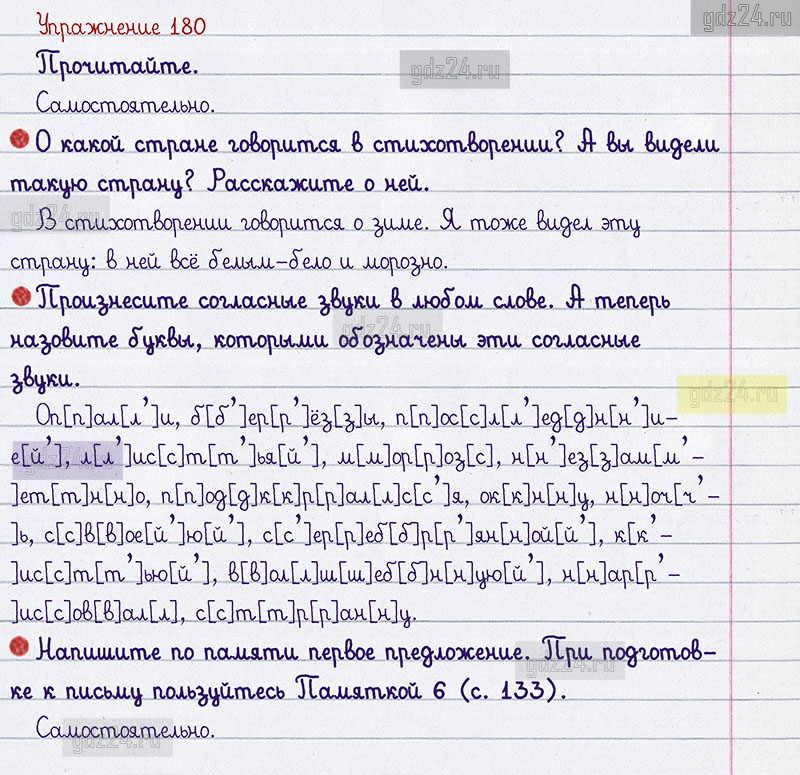 gdz24.ru
Упражнение 180
Прочитайте.
gdz24.ru
Самостоятельно.
О какой стране говорится в стихотворении? А вы видели
такую страну? Расскажите о ней.
gdz24.ru
В стихотворении говорится о зиме. Я тоже видел эту
страну: в ней всё белым-бело и морозно.
Произнесите согласные звуки в любом слове. А теперь
gdz24.ru
назовите буквы, которыми обозначены эти согласные
звуки.
gdz24.ru
Оп[п]ал[л’]и, б[б’]ер[р’]ёз[з]ы, п[п]ос[с]л[л’]ед[д]н[н’]и-
е[й’], л[л’]ис[с]т[т’]ья[й’], м[м]ор[р]оз[с], н[н’]ез[з]ам[м’-
gdz24.ru
]ет[т]н[н]о, п[п]од[д]к[к]р[р]ал[л]с[с’]я, ок[к]н[н]у, н[н]оч[ч’-
]ь, с[с]в[в]ое[й’]ю[й’], с[с’]ер[р]еб[б]р[р’]ян[н]ой[й’], к[к’-
]ис[с]т[т’]ью[й’], в[в]ол[л]ш[ш]еб[б]н[н]ую[й’], н[н]ар[р’-
]ис[с]ов[в]ал[л], с[с]т[т]р[р]ан[н]у.
Напишите по памяти первое предложение. При подготов-
gdz24.ru
ке к письму пользуйтесь Памяткой 6 (с. 133).
Самостоятельно.
gdz24.ru